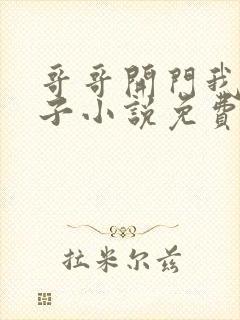 哥哥開門我
子小說免費
拉米尔兹